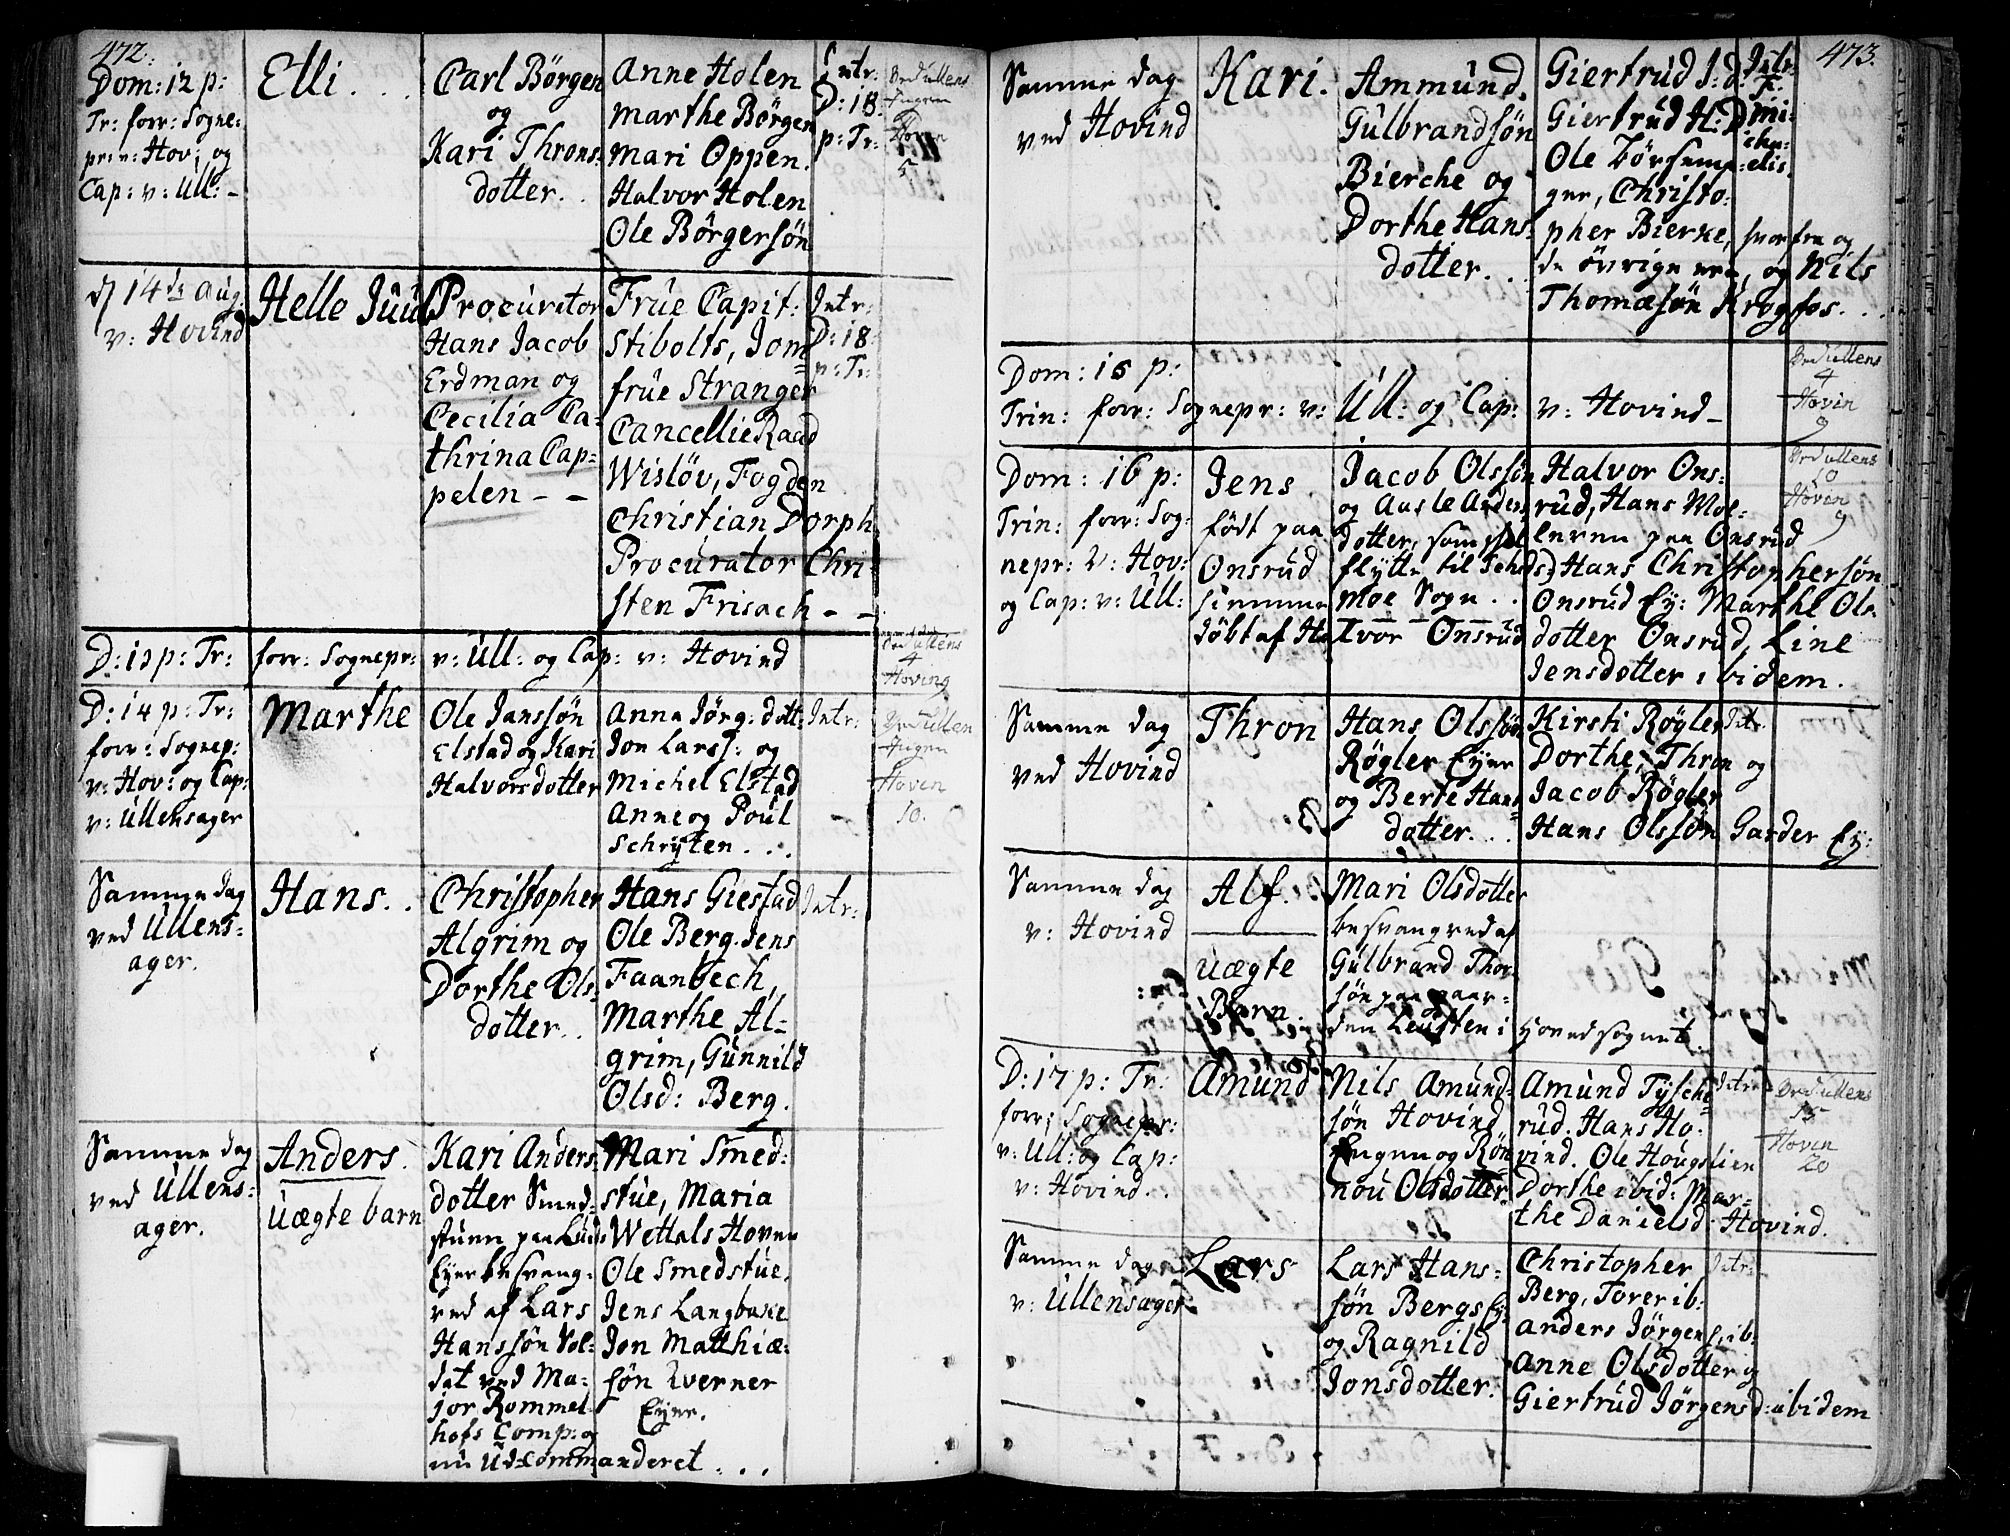 472.
Dom: 12 p:
Tr: forr: Sogne-
pr: v: Hov: og
Cap: v: Ull: -
Elli . . .
Carl Börgen
og
Kari Throns-
dotter. .
Anne Holen
Marthe Börgen
Mari Oppen.
Halvor Holen
Ole Börgersön
Intr:
D: 18.
p: Tr:
Ved Ullens
Ingen
Hoven
5
d 14de Aug.
v: Hovind
Helle Juul
Procurator
Hans Jacob
Erdman og
Cecilia Ca-
thrina Cap-
pelen - -
Frue Capit:
Stibolts, Jom-
frue Stranger
Cancellie Raad
Wisløv, Fogden
Christian Dorph
Procurator Chri-
sten Frisach - -
Intr:
D: 18
p: Tr:
D: 13 p: Tr: forr: Sognepr: v: Ull: og Cap: v: Hovind
Ved Ullens
4
Hoving
D: 14 p: Tr:
forr: Sognep:
v: Hov: og Cap:
v: Ullensager
Marthe
Ole Janssön
Elstad og Kari
Halvorsdotter
Anna Jörg: dott:
Jon Larss: og
Michel Elstad
Anne og Poul
Schryten . . .
Intr:
Ved Ullen
Ingen
Hoven
10.
Samme dag
ved Ullens-
ager.
Hans. .
Christopher
Algrim og
Dorthe Ols-
dotter. .
Hans Giestad
Ole Berg. Jens
Faanbech,
Marthe Al-
grim, Gunnild
Olsd: Berg.
Intr:
Samme dag
ved Ullens-
ager.
Anders.
Uægte barn
Kari Anders-
dotter Smed-
stuen paa
Eyer besvang-
red af Lars
Hanssön Sol-
dat ved Ma-
jor Rommel-
hofs Comp: og
nu Udcommanderet . . .
Mari Smed-
stue, Maria
Wettals Hoven
Ole Smedstue,
Jens Langbake
Jon Matthiæ-
sön Kverner
Eyer.
473.
Samme dag
ved Hovind
Kari.
Ammund.
Gulbrandsön
Bierche og
Dorthe Hans-
dotter. . .
Giertrud I: d:
Giertrud H: D
Ole Börsemp-
ger, Christo-
pher Bierke, hvorfra og
de övrige ere, og Nils
Thomæsön Krogfos. . .
Intr:
F.
Mi-
cha-
elis.
Dom: 15 p:
Trin: forr: Sognepr: v: Ull: og Cap: v: Hovind -
Ved Ullens
4
Hovin
9
Dom: 16 p:
Trin: forr: Sog-
nepr: v: Hov:
og Cap: v: Ull:
Jens
födt paa
Onsrud
hiemme
döbt af Ha
Jacob Olssön
og Aasle Anders
dotter, som skal
flytte til Scheds-
moe Sogn . .
Ivor Onsrud
Halvor Ons-
rud, Hans Moe-
leren paa Onsrud
Hans Christophersön
Onsrud Ey: Marthe Ols-
dotter Onsrud, Line
Jensdotter ibidem.
Ved Ullens
10
Hoven
9
Samme dag
ved Hovind
Thron
Hans Olssön
Røgler Eyer
og Berte Hans-
dotter. . .
Kirsti Røgler
Dorthe, Thron og
Jacob Røgler
Hans Olssön Garder Ey:
Intr.
Samme dag
v: Hovind
Alf.
Uægte
Barn.
Mari Olsdotter
besvangred af
Gulbrand Thor-
sön paa gaar-
den Leuften i Hovedsognet.
D: 17 p: Tr:
forr: Sognepr:
v: Ull: og Cap:
v: Hovind. .
Amund
Nils Amund-
sön Hovind
Engen og Rön-
nou Olsdotter.
Amund Tysche-
rud. Hans Ho-
vind. Ole Hougslien
Dorthe ibid: Mar-
the Danielsd: Hovind.
Intr:
Ved Ullens
15
Hoven
20
Samme dag
v: Ullensager
Lars
Lars Hans-
sön Bergs Ey:
og Ragnild
Jonsdotter.
Christopher
Berg, Torer ib:
Anders Jörgens: ib:
Anne Olsdotter og
Giertrud Jörgensd: ibidem
Intr: